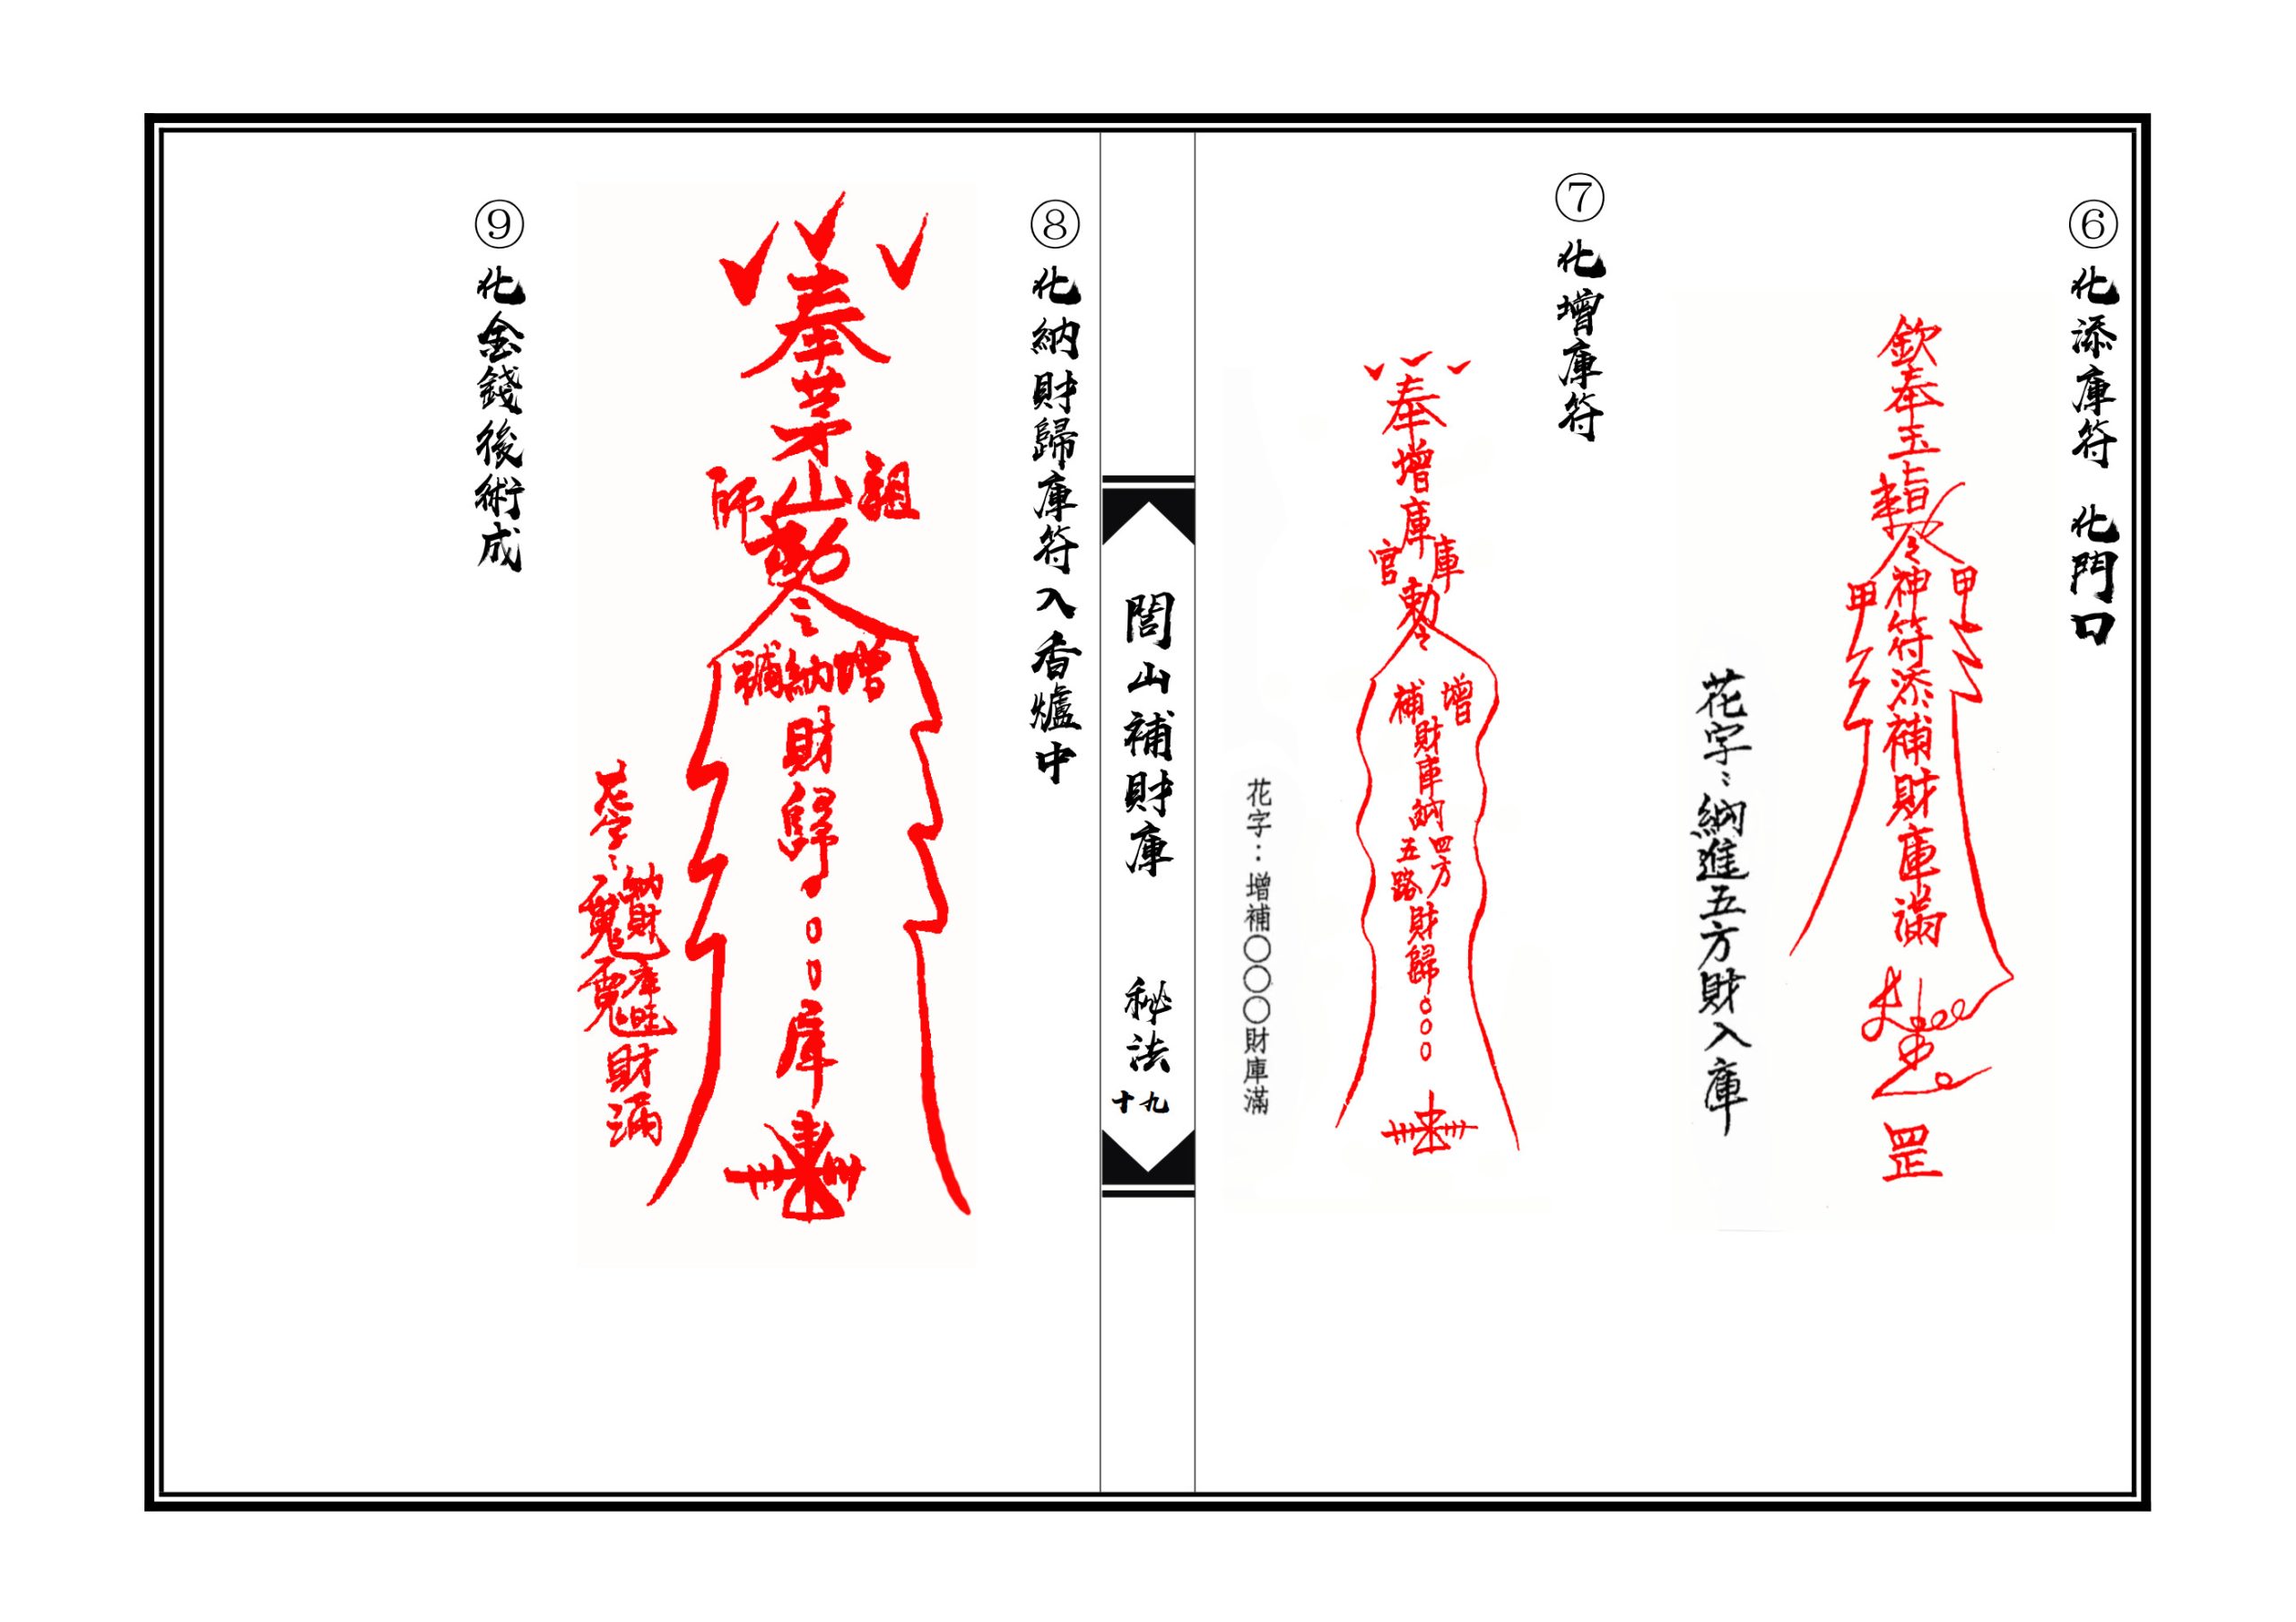 ⑥化添庫符　化門口
欽奉玉旨
令神符添補財庫滿
甲
甲
罡
花字：納進五方財入庫
⑦化增庫符
奉增庫
庫官
勅令
增補
財庫納
四方
五路
財歸○○○
花字：增補○○○財庫滿
閭山補財庫　秘法
十九
⑧化納財歸庫符入香爐中
奉茅山
祖師
勅令
增納補
財歸○○○庫
花字：
財滿
⑨化金錢後術成